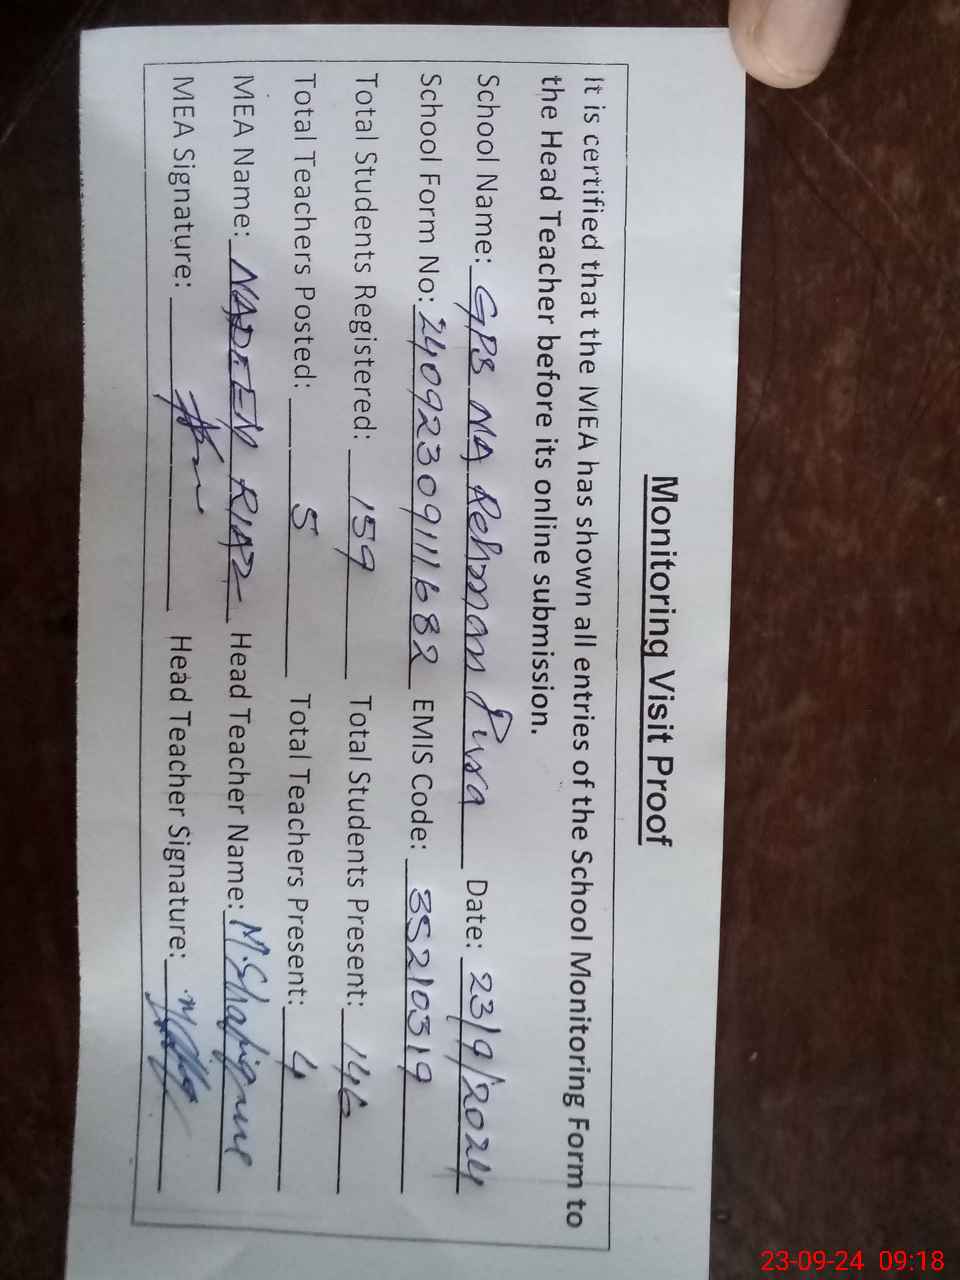 Monitoring Visit Proof
It is certified that the MEA has shown all entries of the School Monitoring Form to
the Head Teacher before its online submission.
School Name: GPS MA Rehman Pura Date: 23/9/2024
School Form No: 2409230911682 EMIS Code: 35210319
Total Students Registered: 159 Total Students Present: 146
Total Teachers Posted: 5 Total Teachers Present: 4
MEA Name: NADEEM RIAZ Head Teacher Name: M.
MEA Signature: Head Teacher Signature:
23-09-24 09:18